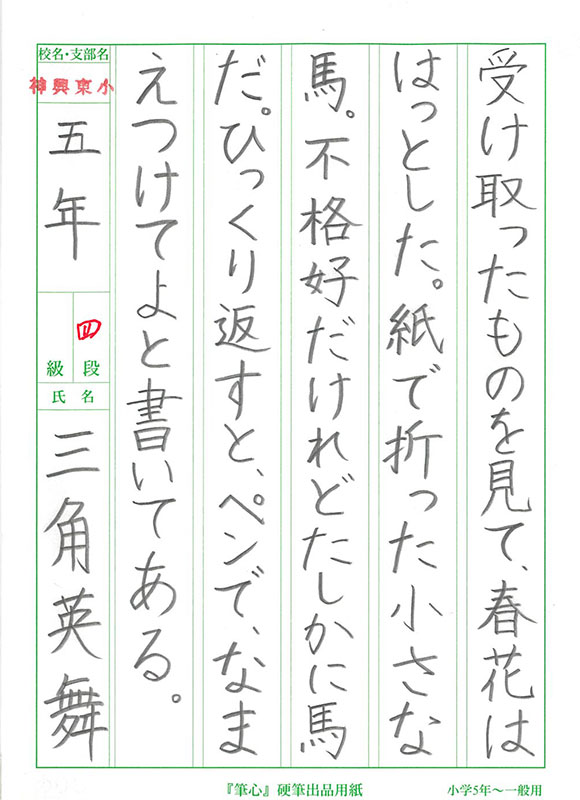 受け取ったものを見て、春花は
はっとした。紙で折った小さな
馬。不格好だけれどたしかに馬
だ。ひっくり返すと、ペンで、なま
えつけてよと書いてある。
校名・支部名
神興東小
五年
四段
級
氏名
三角英舞
『筆心』硬筆出品用紙
小学5年〜一般用